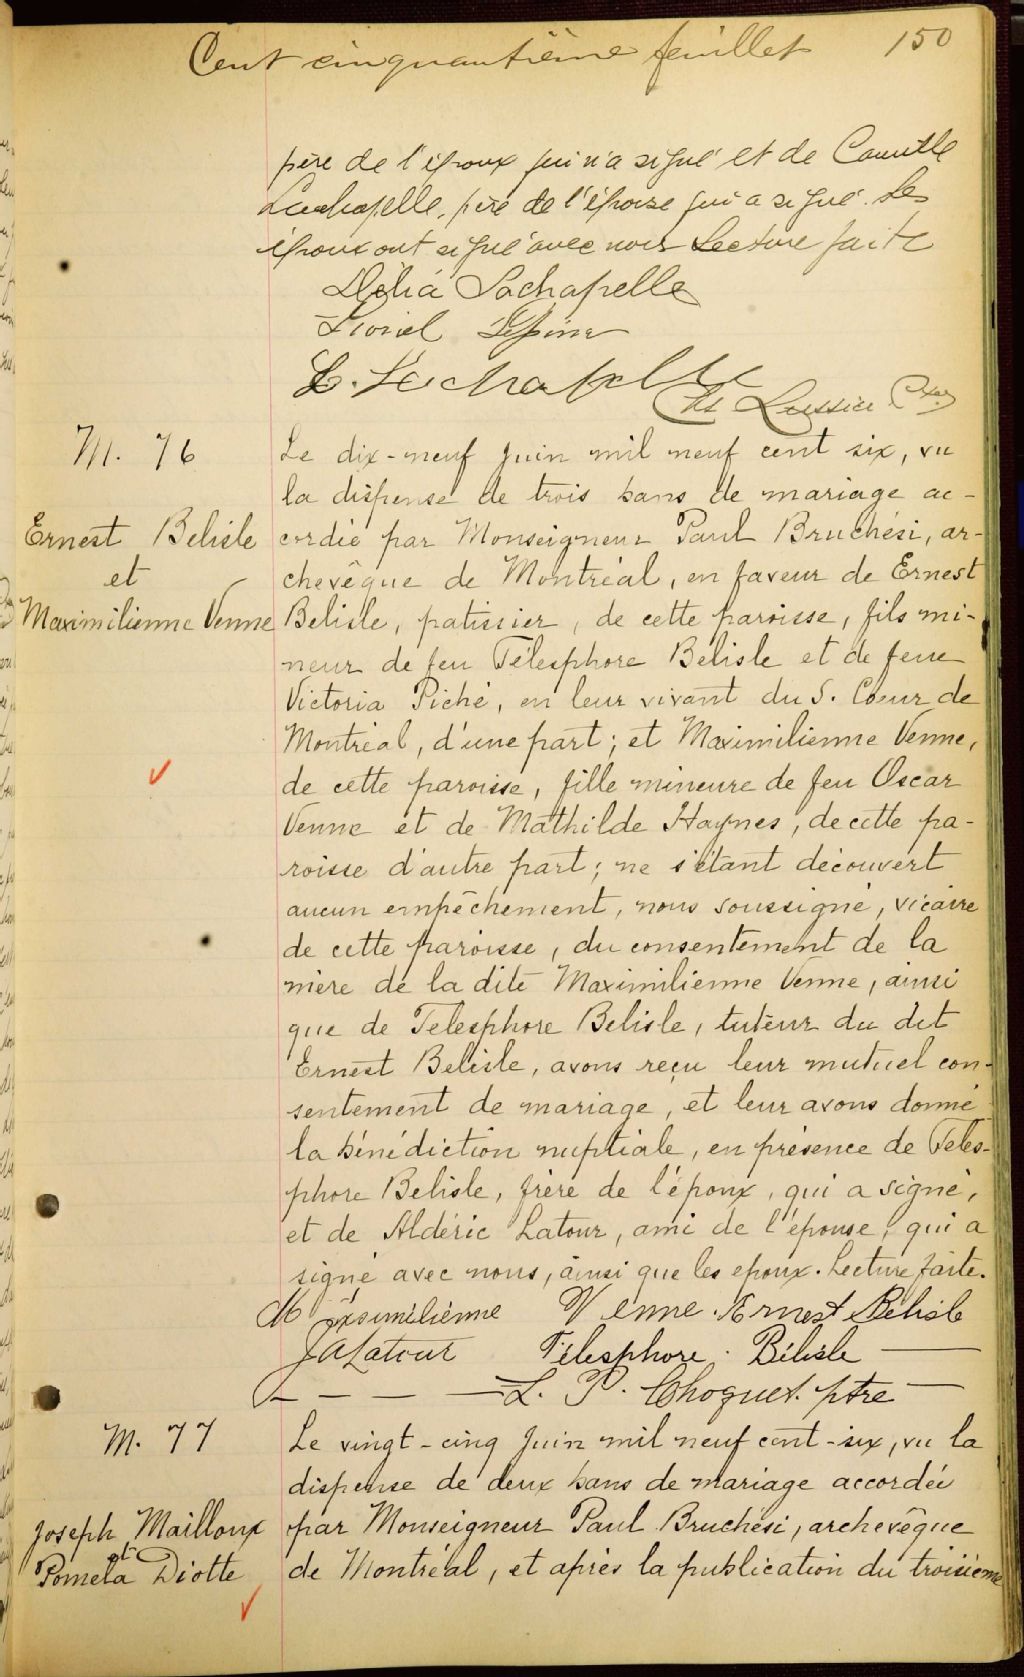 Cent cinquantième feuillet 150
père de l'époux qui n'a signé et de Camille
Lachapelle, père de l'épouse qui a signé. Les
époux ont signé avec nous Lecture faite
Délia Lachapelle
Lionel Lépine
C. Lachapelle
Lussier Ptre
M. 76
Ernest Belisle
et
Maximilienne Venne
Le dix-neuf juin mil neuf cent six, vu
la dispense de trois bans de mariage ac-
cordée par Monseigneur Paul Bruchési, ar-
chevêque de Montréal, en faveur de Ernest
Belisle, patissier, de cette paroisse, fils mi-
neur de feu Télesphore Belisle et de feue
Victoria Piché, en leur vivant du S. Coeur de
Montréal, d'une part; et Maximilienne Venne,
de cette paroisse, fille mineure de feu Oscar
Venne et de Mathilde Haynes, de cette pa-
roisse d'autre part; ne s'étant découvert
aucun empêchement, nous soussigné, vicaire
de cette paroisse, du consentement de la
mère de la dite Maximilienne Venne, ainsi
que de Telesphore Belisle, tuteur du dit
Ernest Belisle, avons reçu leur mutuel con-
sentement de mariage, et leur avons donné
la bénédiction nuptiale, en présence de Teles-
phore Belisle, frère de l'époux, qui a signé,
et de Aldéric Latour, ami de l'épouse, qui a
signé avec nous, ainsi que les epoux. Lecture faite.
Maxsimiliénne Venne. Ernest Belisle
J A Latour Télesphore Bélisle
L. P. Choquet. ptre
M. 77
Joseph Mailloux
et
Pomela Diotte
Le vingt-cinq juin mil neuf cent-six, vu la
dispense de deux bans de mariage accordée
par Monseigneur Paul Bruchési, archevêque
de Montréal, et après la publication du troisième